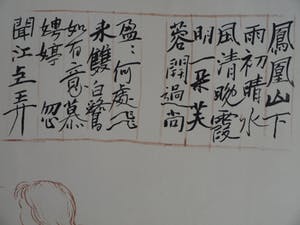 鳳凰山下
雨初晴水
風清晚霞
明一朶芙
蓉開過尚
盈〻何處飛
來雙白鷺
如有意慕
娉婷 忽
聞江上弄